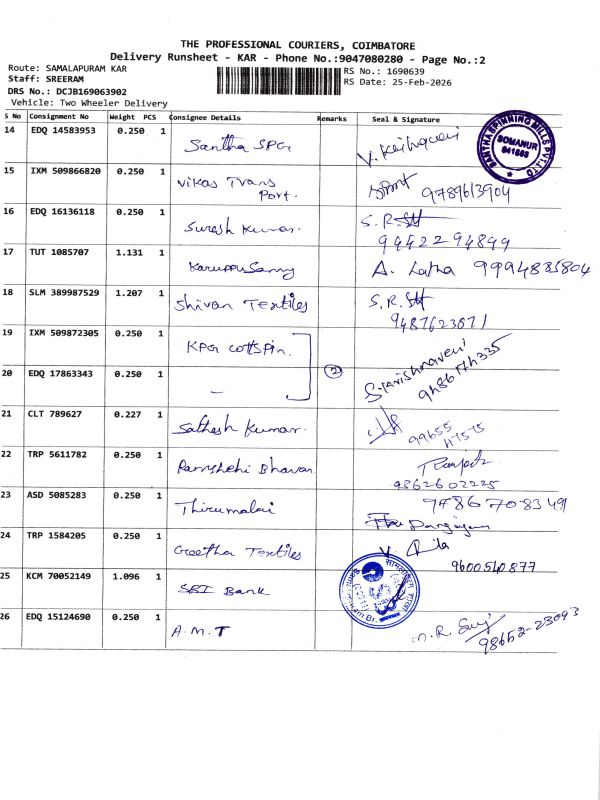 THE PROFESSIONAL COURIERS, COIMBATORE
Delivery Runsheet - KAR - Phone No.:9047080280 - Page No.:2
Route: SAMALAPURAM KAR
Staff: SREERAM
DRS No.: DCJB169063902
Vehicle: Two Wheeler Delivery
RS No.: 1690639
RS Date: 25-Feb-2026
S No Consignment No Weight PCS Consignee Details Remarks Seal & Signature
14 EDQ 14583953 0.250 1 Santha SPG
SANTHA SPINNING MILLS PVT. LTD
SOMANUR
641668
15 IXM 509866820 0.250 1 Vikas Trans Port. 9789613904
16 EDQ 16136118 0.250 1 Suresh Kumar. S.R. 9442294899
17 TUT 1085707 1.131 1 Karuppusamy A. Latha 9994835804
18 SLM 389987529 1.207 1 Shivan Textiles S.R. 9487623071
19 IXM 509872305 0.250 1 KPG cottspin.
20 EDQ 17863343 0.250 1 - 2
21 CLT 789627 0.227 1 Sathesh Kumar. 99655
22 TRP 5611782 0.250 1 Bhavan 9362602225
23 ASD 5085283 0.250 1 Thirumalai 9486708349
24 TRP 1584205 0.250 1 Geetha Textiles V. 9600540877
25 KCM 70052149 1.096 1 SBI Bank
26 EDQ 15124690 0.250 1 A.M.T 98652-23093